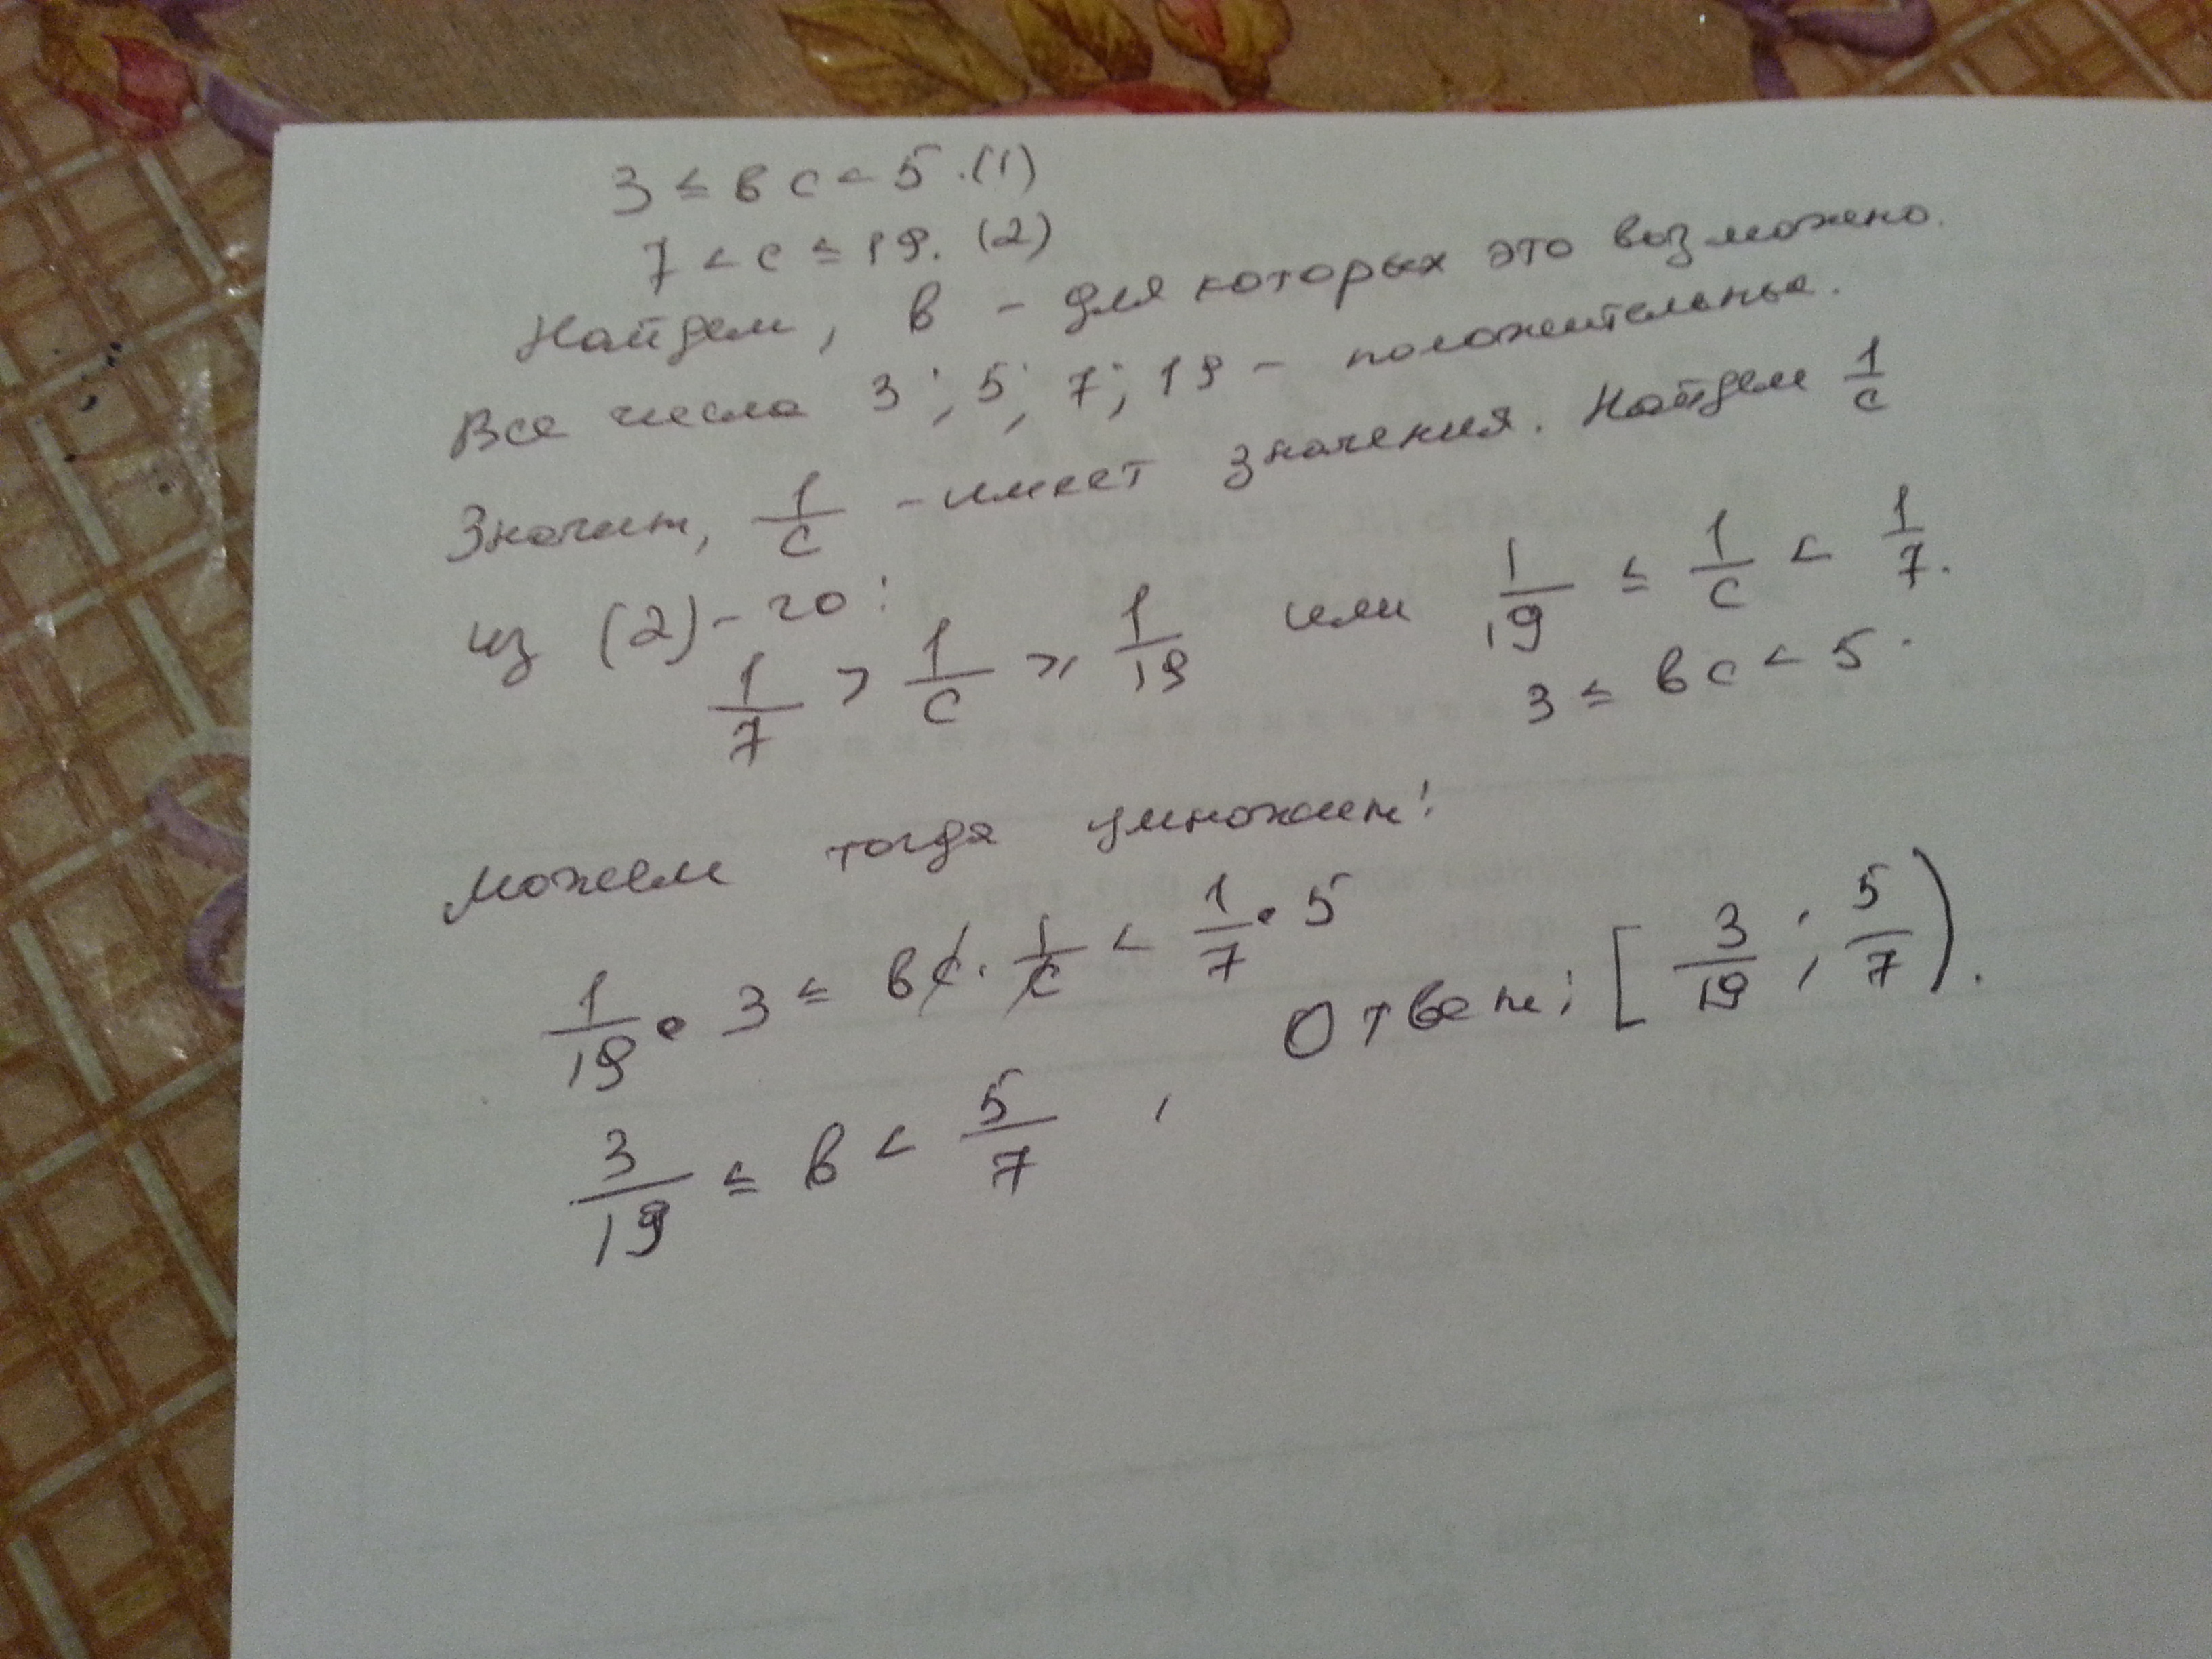 3 ≤ вс < 5. (1)
7 < с ≤ 19. (2)
Найдем, в - для которых это возможно.
Все числа 3; 5; 7; 19 - положительные.
Значит, 1/с - имеет значения. Найдем 1/с
из (2) - го:
1/7 > 1/с ≥ 1/19 или 1/19 ≤ 1/с < 1/7.
3 ≤ вс < 5.
можем тогда умножить:
1/19 · 3 ≤ вс · 1/с < 1/7 · 5
3/19 ≤ в < 5/7,
Ответ: [3/19; 5/7).